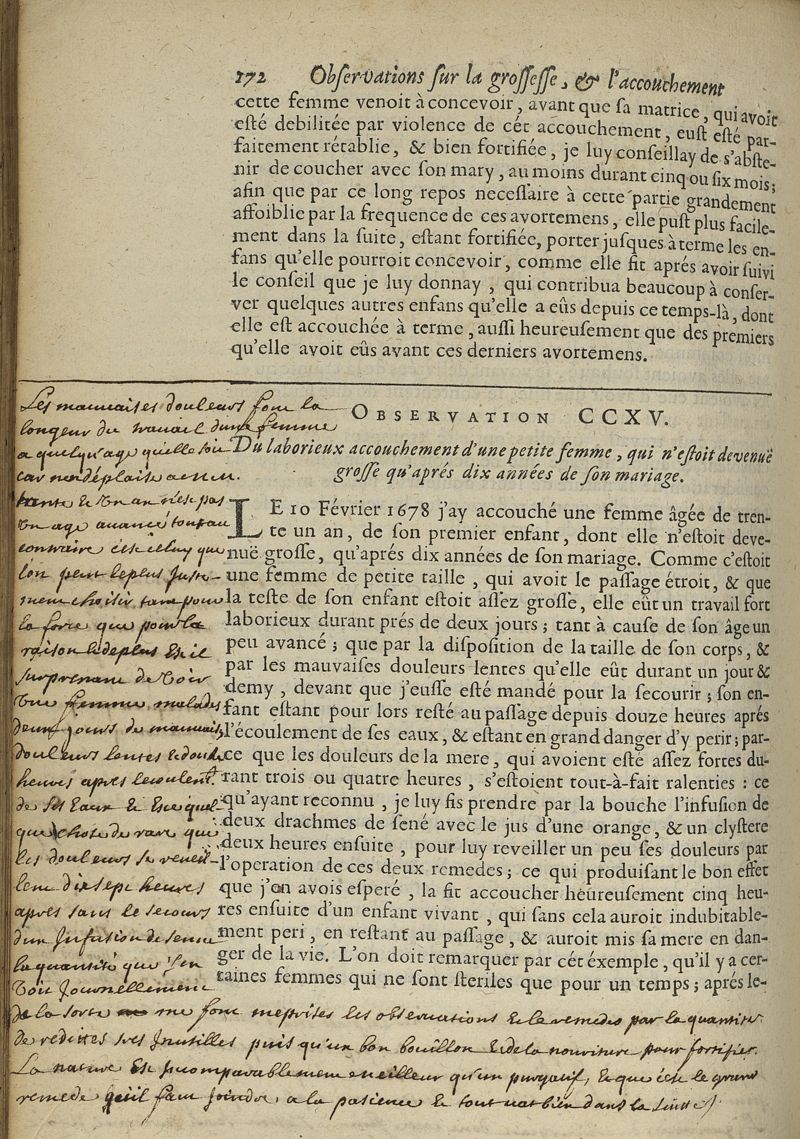 172 Observations sur la grossesse, & l'accouchement
cette femme venoit à concevoir, avant que sa matrice, qui avoit
esté debilitée par violence de cét accouchement, eust esté par-
faitement rétablie, & bien fortifiée, je luy conseillay de s'abste-
nir de coucher avec son mary, au moins durant cinq ou six mois;
afin que par ce long repos necessaire à cette partie grandement
affoiblie par la frequence de ces avortemens, elle pust plus facile-
ment dans la suite, estant fortifiée, porter jusques à terme les en-
fans qu'elle pourroit concevoir, comme elle fit aprés avoir suivi
le conseil que je luy donnay, qui contribua beaucoup à conser-
ver quelques autres enfans qu'elle a eûs depuis ce temps-là, dont
elle est accouchée à terme, aussi heureusement que des premiers
qu'elle avoit eûs avant ces derniers avortemens.
OBSERVATION CCXV.
Du laborieux accouchement d'une petite femme, qui n'estoit devenuë
grosse qu'aprés dix années de son mariage.
LE 10 Février 1678 j'ay accouché une femme âgée de tren-
te un an, de son premier enfant, dont elle n'estoit deve-
nuë grosse, qu'aprés dix années de son mariage. Comme c'estoit
une femme de petite taille, qui avoit le passage étroit, & que
la teste de son enfant estoit assez grosse, elle eût un travail fort
laborieux durant prés de deux jours; tant à cause de son âge un
peu avancé; que par la disposition de la taille de son corps, &
par les mauvaises douleurs lentes qu'elle eût durant un jour &
demy, devant que j'eusse esté mandé pour la secourir; son en-
fant estant pour lors resté au passage depuis douze heures aprés
l'écoulement de ses eaux, & estant en grand danger d'y perir; par-
ce que les douleurs de la mere, qui avoient esté assez fortes du-
rant trois ou quatre heures, s'estoient tout-à-fait ralenties: ce
qu'ayant reconnu, je luy fis prendre par la bouche l'infusion de
deux drachmes de sené avec le jus d'une orange, & un clystere
deux heures ensuite, pour luy reveiller un peu ses douleurs par
l'operation de ces deux remedes; ce qui produisant le bon effet
que j'en avois esperé, la fit accoucher héureusement cinq heu-
res ensuite d'un enfant vivant, qui sans cela auroit indubitable-
ment peri, en restant au passage, & auroit mis sa mere en dan-
ger de la vie. L'on doit remarquer par cét éxemple, qu'il y a cer-
taines femmes qui ne sont steriles que pour un temps; aprés le-
Les mauvaises douleurs font la
longeur du travail dune femme
a quelqu'age quelle soit
car nendéplaise a
trente & un an n'est pas
un age avancé
contraire cest celuy que
lon peut le plus
choisir tant pour
la force que pour la
raison
surprenant de voir
une femme malade
deux jours de mauvaises
douleurs lentes & douze
heures apres lecoulemt.
de ses eaux & est ce quel
que chose de rare que
les douleurs se reveil-
lent dix sept heures
apres sans le secours
dun Infusion de sene
la quantité que l'on
voit Journellement
de la sorte font mepriser les observations & le remede par la quantité
de redites tres Inutilles puis qu'un bon bouillon & de la nouriture pour fortifier
La nature est Incomparablement meilleur qu'un purgatif, & que cest le grand
remede quil faut joindre, a la patience & tout va bien dans la suitte